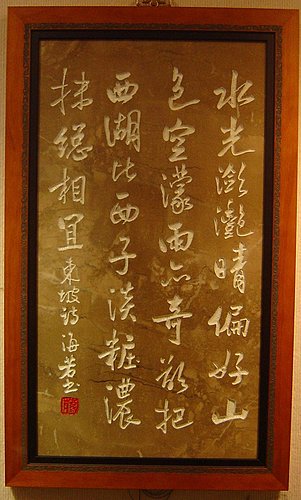 水光瀲灧晴偏好山
色空濛雨亦奇欲把
西湖比西子淡粧濃
抹總相宜東坡詩海若書